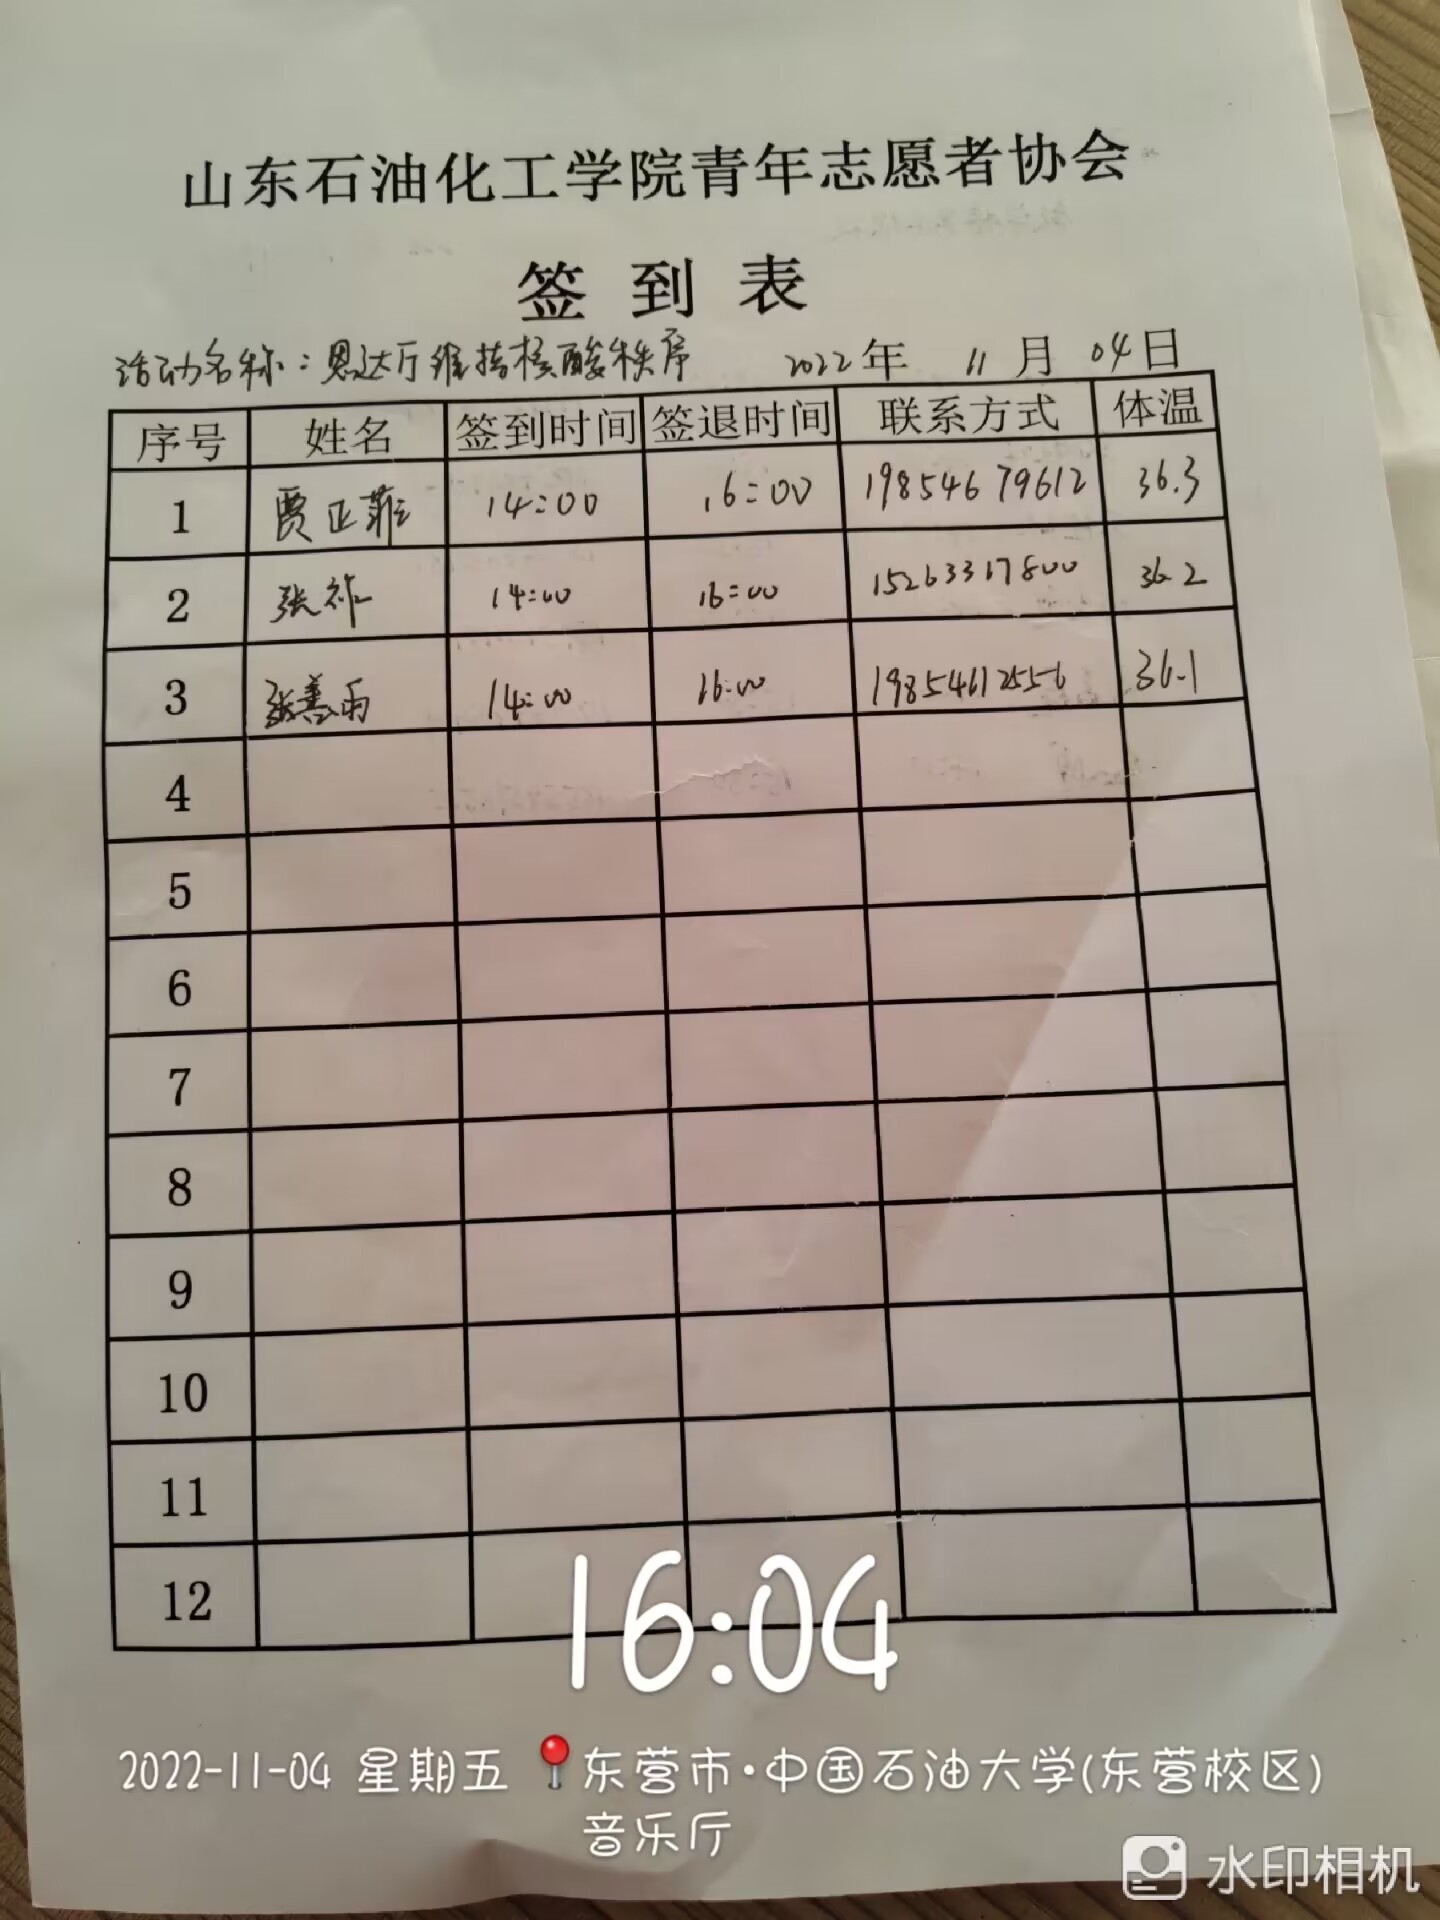 山东石油化工学院青年志愿者协会
签到表
活动名称：恩达厅维持核酸秩序 2022年 11月 04日
序号 姓名 签到时间 签退时间 联系方式 体温
1 贾正菲 14:00 16:00 19854679612 36.3
2 张祚 14:00 16:00 15263317800 36.2
3 张善雨 14:00 16:00 19854612556 36.1
4
5
6
7
8
9
10
11
12
16:04
2022-11-04 星期五 东营市·中国石油大学(东营校区)
音乐厅
水印相机